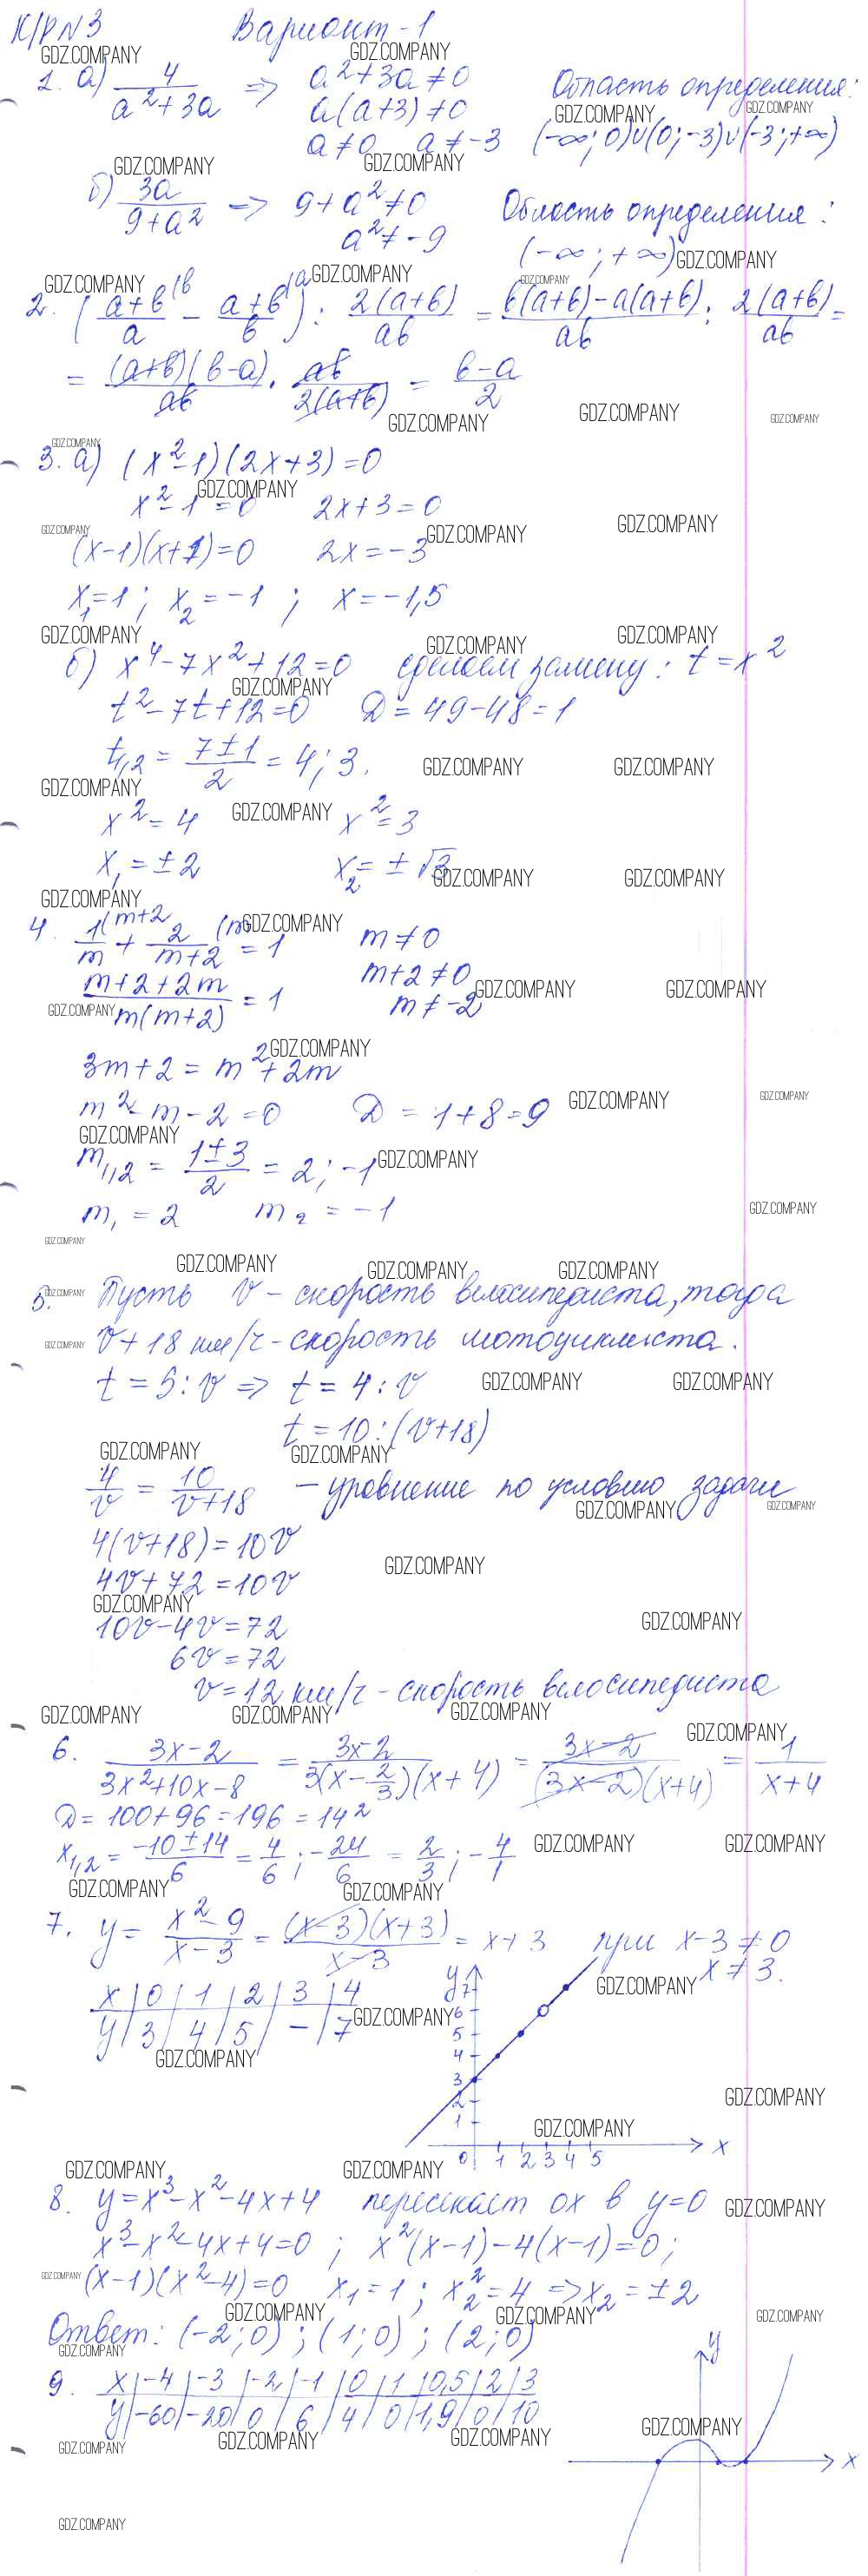 К/Р N3 Вариант-1
1. а) 4/(a²+3a) => a²+3a≠0 Область определения:
a(a+3)≠0
a≠0 a≠-3 (-∞;0)∪(0;-3)∪(-3;+∞)
б) 3a/(9+a²) => 9+a²≠0 Область определения:
a²≠-9 (-∞;+∞)
2. ((a+b)/a (b - (a+b)/b (a) : 2(a+b)/ab = (b(a+b)-a(a+b))/ab : 2(a+b)/ab =
= (a+b)(b-a)/ab · ab/2(a+b) = (b-a)/2
3. а) (x²-1)(2x+3)=0
x²-1=0 2x+3=0
(x-1)(x+1)=0 2x=-3
x₁=1; x₂=-1; x=-1,5
б) x⁴-7x²+12=0 сделаем замену: t=x²
t²-7t+12=0 D=49-48=1
t₁,₂ = (7±1)/2 = 4; 3.
x²=4 x²=3
x₁=±2 x₂=±√3
4. 1/m (m+2 + 2/(m+2) (m = 1 m≠0
(m+2+2m)/(m(m+2)) = 1 m+2≠0
m≠-2
3m+2=m²+2m
m²-m-2=0 D=1+8=9
m₁,₂ = (1±3)/2 = 2; -1
m₁=2 m₂=-1
5. Пусть v - скорость велосипедиста, тогда
v+18 км/ч - скорость мотоциклиста.
t=S:v => t=4:v
t=10:(v+18)
4/v = 10/(v+18) - уровнение по условию задачи
4(v+18)=10v
4v+72=10v
10v-4v=72
6v=72
v=12 км/ч - скорость велосипедиста
6. (3x-2)/(3x²+10x-8) = (3x-2)/(3(x-2/3)(x+4)) = (3x-2)/((3x-2)(x+4)) = 1/(x+4)
D=100+96=196=14²
x₁,₂ = (-10±14)/6 = 4/6; -24/6 = 2/3; -4/1
7. y = (x²-9)/(x-3) = (x-3)(x+3)/(x-3) = x+3 при x-3≠0
x≠3.
x | 0 | 1 | 2 | 3 | 4
y | 3 | 4 | 5 | - | 7
y
7
6
5
4
3
2
1
0 1 2 3 4 5 x
8. y=x³-x²-4x+4 пересекает ox в y=0
x³-x²-4x+4=0; x²(x-1)-4(x-1)=0;
(x-1)(x²-4)=0 x₁=1; x₂²=4 => x₂=±2
Ответ: (-2;0); (1;0); (2;0)
9. x | -4 | -3 | -2 | -1 | 0 | 1 | 0,5 | 2 | 3
y | -60 | -20 | 0 | 6 | 4 | 0 | 1,9 | 0 | 10
y
x
GDZ.COMPANY